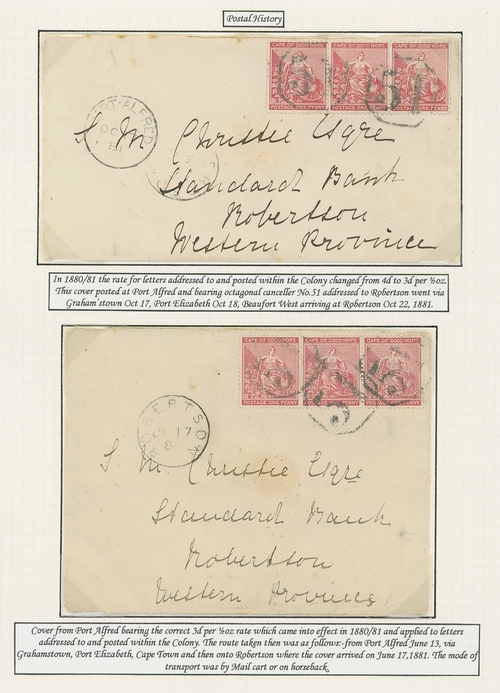 Postal History
CAPE OF GOOD HOPE CAPE OF GOOD HOPE CAPE OF GOOD HOPE
POSTAGE ONE PENNY POSTAGE ONE PENNY POSTAGE ONE PENNY
51
PORT·ALFRED
OC
S. M Christie Esqre
Standard Bank
Robertson
Western Province
In 1880/81 the rate for letters addressed to and posted within the Colony changed from 4d to 3d per ½oz.
This cover posted at Port Alfred and bearing octagonal canceller No.51 addressed to Robertson went via
Graham'stown Oct 17, Port Elizabeth Oct 18, Beaufort West arriving at Robertson Oct 22, 1881.
CAPE OF GOOD HOPE CAPE OF GOOD HOPE CAPE OF GOOD HOPE
POSTAGE ONE PENNY POSTAGE ONE PENNY POSTAGE ONE PENNY
ROBERTSON
17
8
S. M. Christie Esqre
Standard Bank
Robertson
Western Province
Cover from Port Alfred bearing the correct 3d per ½oz rate which came into effect in 1880/81 and applied to letters
addressed to and posted within the Colony. The route taken then was as follows:-from Port Alfred June 13, via
Grahamstown, Port Elizabeth, Cape Town and then onto Robertson where the cover arrived on June 17,1881. The mode of
transport was by Mail cart or on horseback.